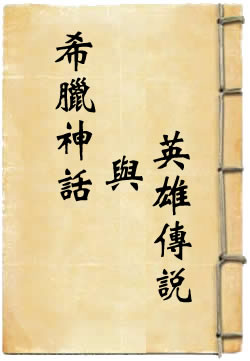 希臘神話
與
英雄傳說